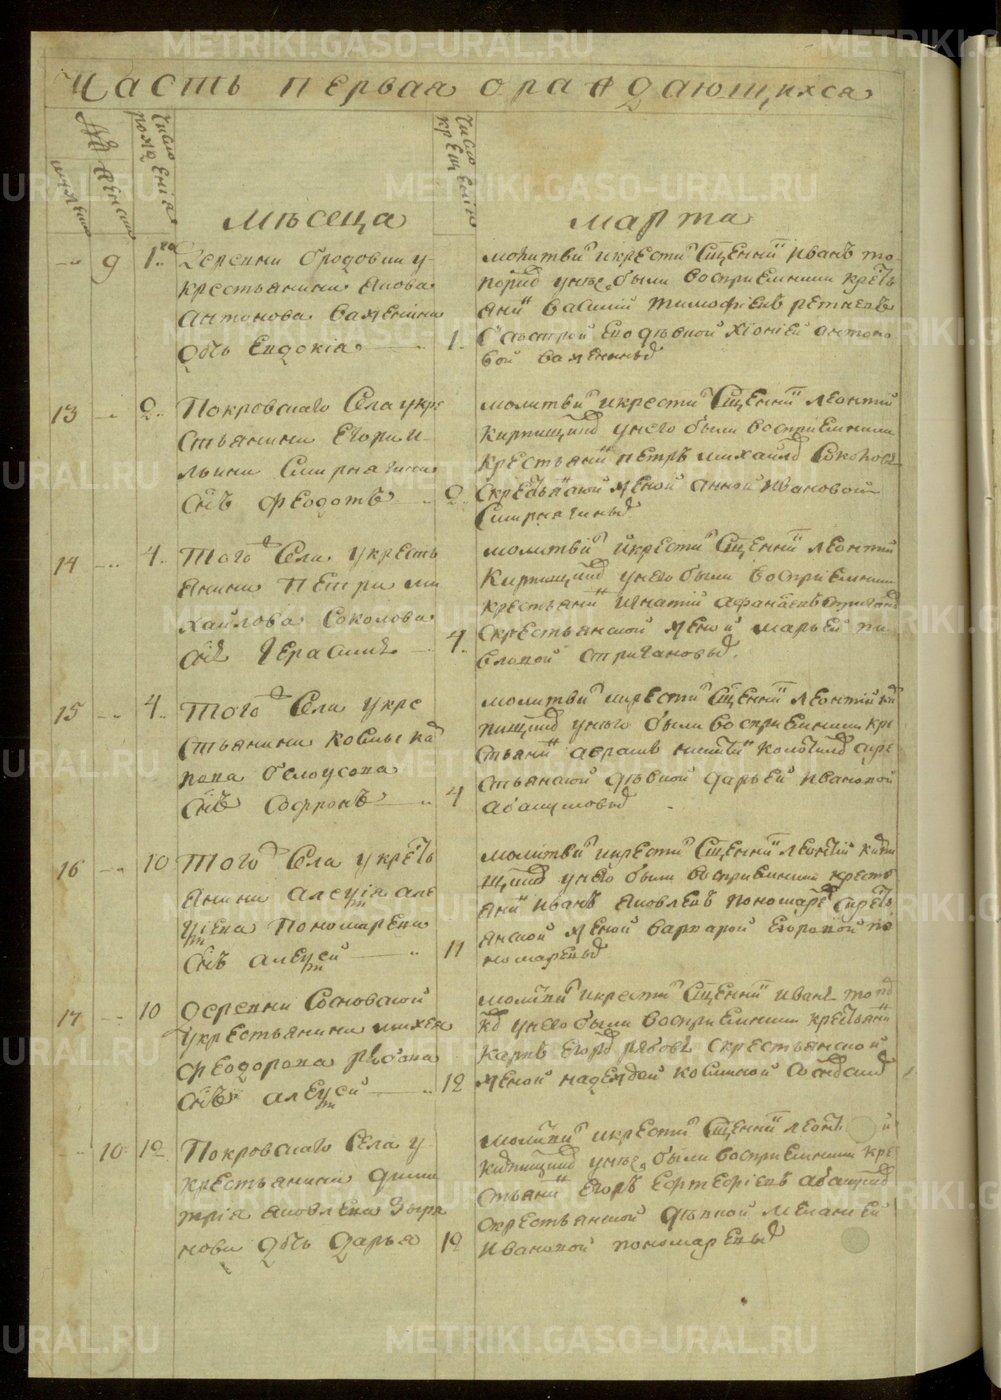 METRIKI.GASO-URAL.RU
Часть первая ораждающихся
№
мужеска
женска
Число рожденiя
Число крещенiя
Мѣсеца
марта
9
1го
Деревни Бродовки у
крестьянина Якова
Антонова Важенина
дочь Евдокiя
1
молитвил и крестил Сщенникъ Иванъ То
порковъ у нее были восприемники крестья
янинъ Василий Тимофѣевъ Ретневъ
С сестрой Его дѣвкой Хiонiей Антоно
вой Важениныхъ
13
2
Покровскаго Села у кре
стьянина Егора И
льина Смирнягина
Снъ Федотъ
2
молитвил и крестил Сщенникъ Леонтий
Кирпищиковъ у него были восприемники
крестьянинъ Петръ Михайловъ Соколовъ
С крестьянской женой Анной Ивановой
Смирнягиныхъ
14
4
Того Села у кресть
янина Петра Ми
хайлова Соколова
Снъ Герасимъ
4
молитвил и крестил Сщенникъ Леонтий
Кирпищиковъ у него были восприемники
крестьянинъ Игнатий Афанасьевъ Стриганов
С крестьянской женой Марьей Па
вловой Стригановыхъ
15
4
Того Села у кре
стьянина Козмы Ка
рпова Белоусова
Снъ Софронъ
4
молитвил и крестил Сщенникъ Леонтий Кир
пищиковъ у него были восприемники кре
стьянинъ Абрамъ Никитинъ с кре
стьянской дѣвкой Дарьей Ивановой
Абакумовыхъ
16
10
Того Села у кресть
янина Алексѣя Але
ксѣева Пономарева
Снъ Алексѣй
11
молитвил и крестил Сщенникъ Леонтий Кирпи
щиковъ у него были восприемники кресть
янинъ Иванъ Яковлевъ Пономаревъ с кресть
янской женой Варварой Егоровой По
номаревыхъ
17
10
Деревни Сосновской
у крестьянина Михея
Федорова Рябова
Снъ Алексѣй
12
молитвил и крестил Сщенникъ Иванъ Топор
ковъ у него были восприемники крестьянинъ
Карпъ Егоровъ Рябовъ С крестьянской
женой Надеждой Козминой
10
12
Покровскаго Села у
крестьянина Дими
трiя Яковлева Зыря
нова дочь Дарья
12
молитвил и крестил Сщенникъ Леонтий
Кирпищиковъ у нее были восприемники кре
стьянинъ Егоръ
с крестьянской дѣвкой Меланьей
Ивановой Пономаревыхъ